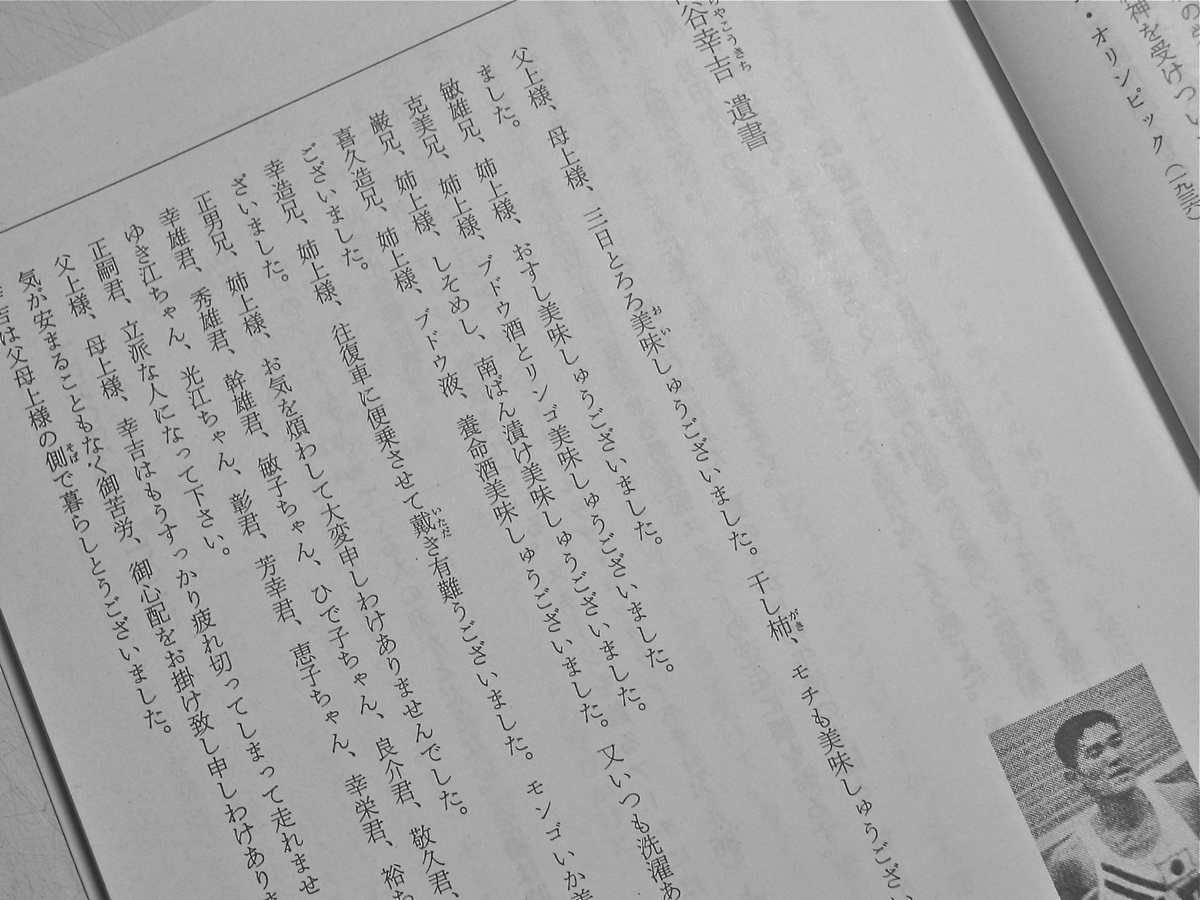 神を受けつい
・オリンピック(一九三六)
谷幸吉 遺書
父上様、母上様、三日とろろ美味しゅうございました。干し柿、モチも美味しゅうござい
ました。
敏雄兄、姉上様、おすし美味しゅうございました。
克美兄、姉上様、ブドウ酒とリンゴ美味しゅうございました。
巌兄、姉上様、しそめし、南ばん漬け美味しゅうございました。
喜久造兄、姉上様、ブドウ液、養命酒美味しゅうございました。又いつも洗濯あ
ございました。
幸造兄、姉上様、往復車に便乗させて戴き有難うございました。モンゴいか美
ざいました。
正男兄、姉上様、お気を煩わして大変申しわけありませんでした。
幸雄君、秀雄君、幹雄君、敏子ちゃん、ひで子ちゃん、良介君、敬久君、
ゆき江ちゃん、光江ちゃん、彰君、芳幸君、恵子ちゃん、幸栄君、裕ち
正嗣君、立派な人になって下さい。
父上様、母上様、幸吉はもうすっかり疲れ切ってしまって走れませ
気が安まることもなく御苦労、御心配をお掛け致し申しわけありま
吉は父母上様の側で暮らしとうございました。